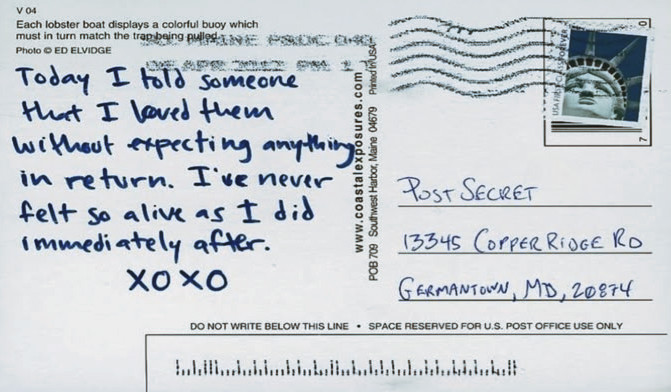 V 04
Each lobster boat displays a colorful buoy which
must in turn match the trap being pulled.
Photo © ED ELVIDGE
Today I told someone
that I loved them
without expecting anything
in return. I've never
felt so alive as I did
immediately after.
XOXO
www.coastalexposures.com
POB 709 Southwest Harbor, Maine 04679 Printed in USA
USA FIRST-CLASS FOREVER
POST SECRET
13345 COPPER RIDGE RD
GERMANTOWN, MD, 20874
DO NOT WRITE BELOW THIS LINE • SPACE RESERVED FOR U.S. POST OFFICE USE ONLY